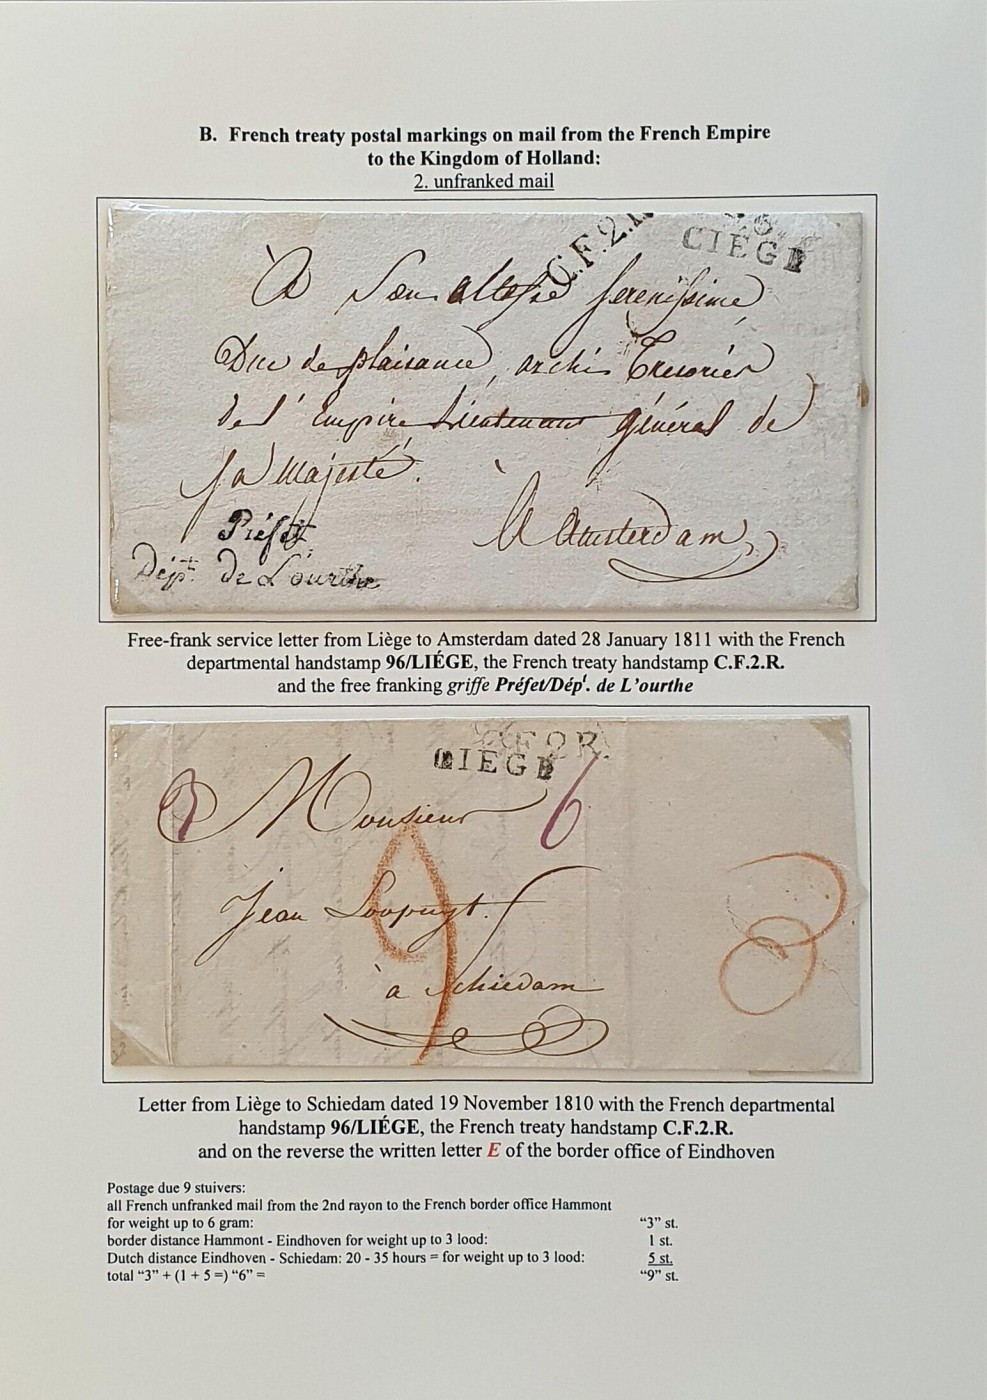 B. French treaty postal markings on mail from the French Empire
to the Kingdom of Holland:
2. unfranked mail
C.F.2.R
96
CIEGE
A Son altesse Serenissime
Duc de plaisance, archi Tresorier
de l'Empire Lieutenant général de
sa Majesté.
Préfet
Dépt. de L'ourthe
à Amsterdam
Free-frank service letter from Liège to Amsterdam dated 28 January 1811 with the French
departmental handstamp 96/LIÉGE, the French treaty handstamp C.F.2.R.
and the free franking griffe Préfet/Dépt. de L'ourthe
C.F.2.R.
LIEGE
3 Monsieur 6
9
Jean Loopuyt.
à Schiedam
Letter from Liège to Schiedam dated 19 November 1810 with the French departmental
handstamp 96/LIÉGE, the French treaty handstamp C.F.2.R.
and on the reverse the written letter E of the border office of Eindhoven
Postage due 9 stuivers:
all French unfranked mail from the 2nd rayon to the French border office Hammont
for weight up to 6 gram: “3” st.
border distance Hammont - Eindhoven for weight up to 3 lood: 1 st.
Dutch distance Eindhoven - Schiedam: 20 - 35 hours = for weight up to 3 lood: 5 st.
total “3” + (1 + 5 =) “6” = “9” st.